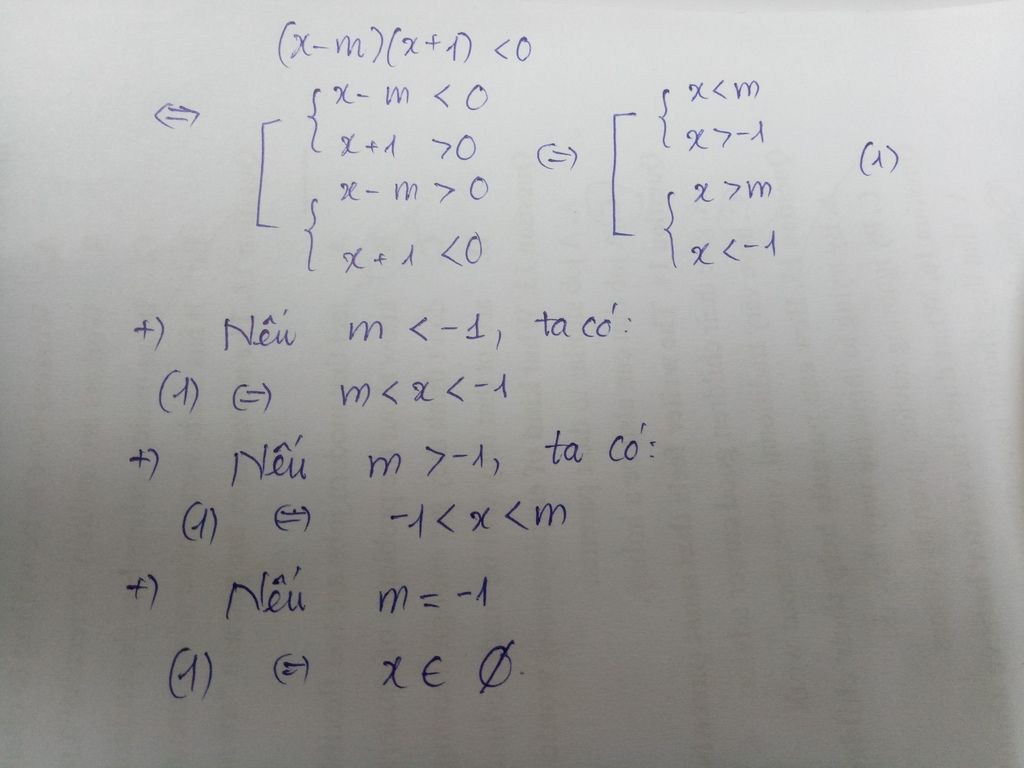 (x-m)(x+1) <0
⇔ [ { x-m < 0 ⇔ [ { x<m
x+1 >0 x>-1 (1)
{ x-m > 0 { x>m
x+1 <0 x<-1
+) Nếu m < -1, ta có:
(1) ⇔ m<x<-1
+) Nếu m >-1, ta có:
(1) ⇔ -1<x<m
+) Nếu m = -1
(1) ⇔ x ∈ ∅.